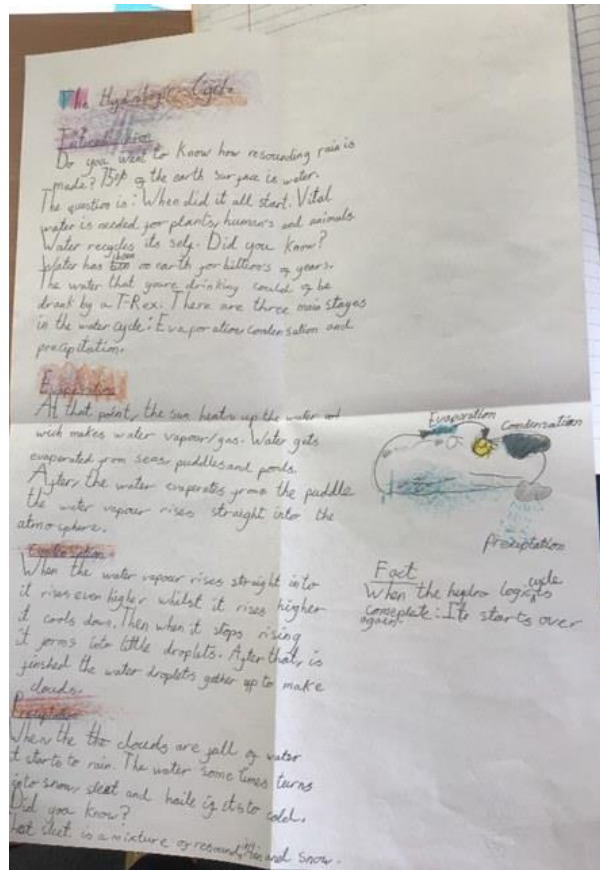 The Hydrologic Cycle
Introduction
Do you want to know how resounding rain is
made? 75% of the earth surface is water.
The question is: When did it all start. Vital
water is needed for plants, human's and animals
Water recycles its self. Did you know?
Water has been on earth for billion's of years.
The water that youre drinking could of be
drank by a T-Rex. There are three main stages
in the water cycle: Evaporation, condensation and
precipitation.
Evaporation
At that point, the sun heats up the water and
wich makes water vapour/gas. Water gets
evaporated from seas, puddles and ponds.
After, the water evaporates from the puddle
the water vapour rises straight into the
atmosphere.
Condensation
When the water vapour rises straight into
it rises even higher whilst it rises higher
it cools down. Then when it stops rising
it forms into little droplets. After that, is
finshed the water droplets gather up to make
clouds.
Precipitation
When the the clouds are full of water
it starts to rain. The water some times turns
into snow, sleet and haile if its to cold.
Did you know?
that sleet is a mixture of resounding rain and snow.
Evaporation
Condensation
Preciptation
Fact
When the hydro logic cycle its
compleate: Its starts over
again